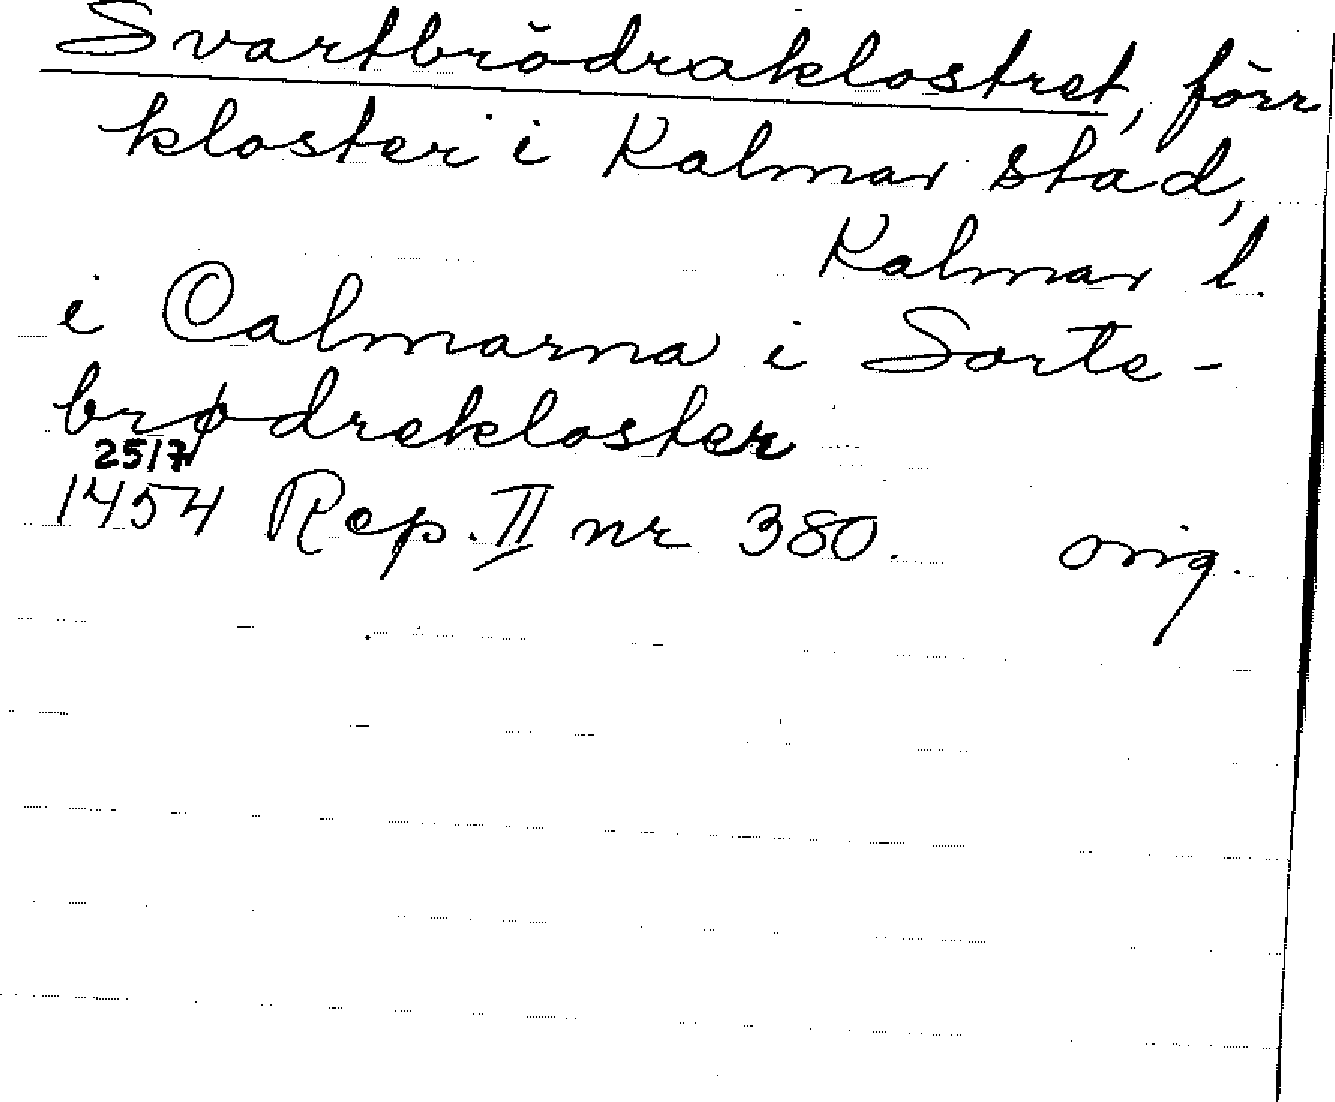 Svartbrödraklostret, förr
kloster i Kalmar stad,
Kalmar l.
i Calmarna i Sorte-
brødrekloster
25/7
1454 Rep. II nr 380. orig.